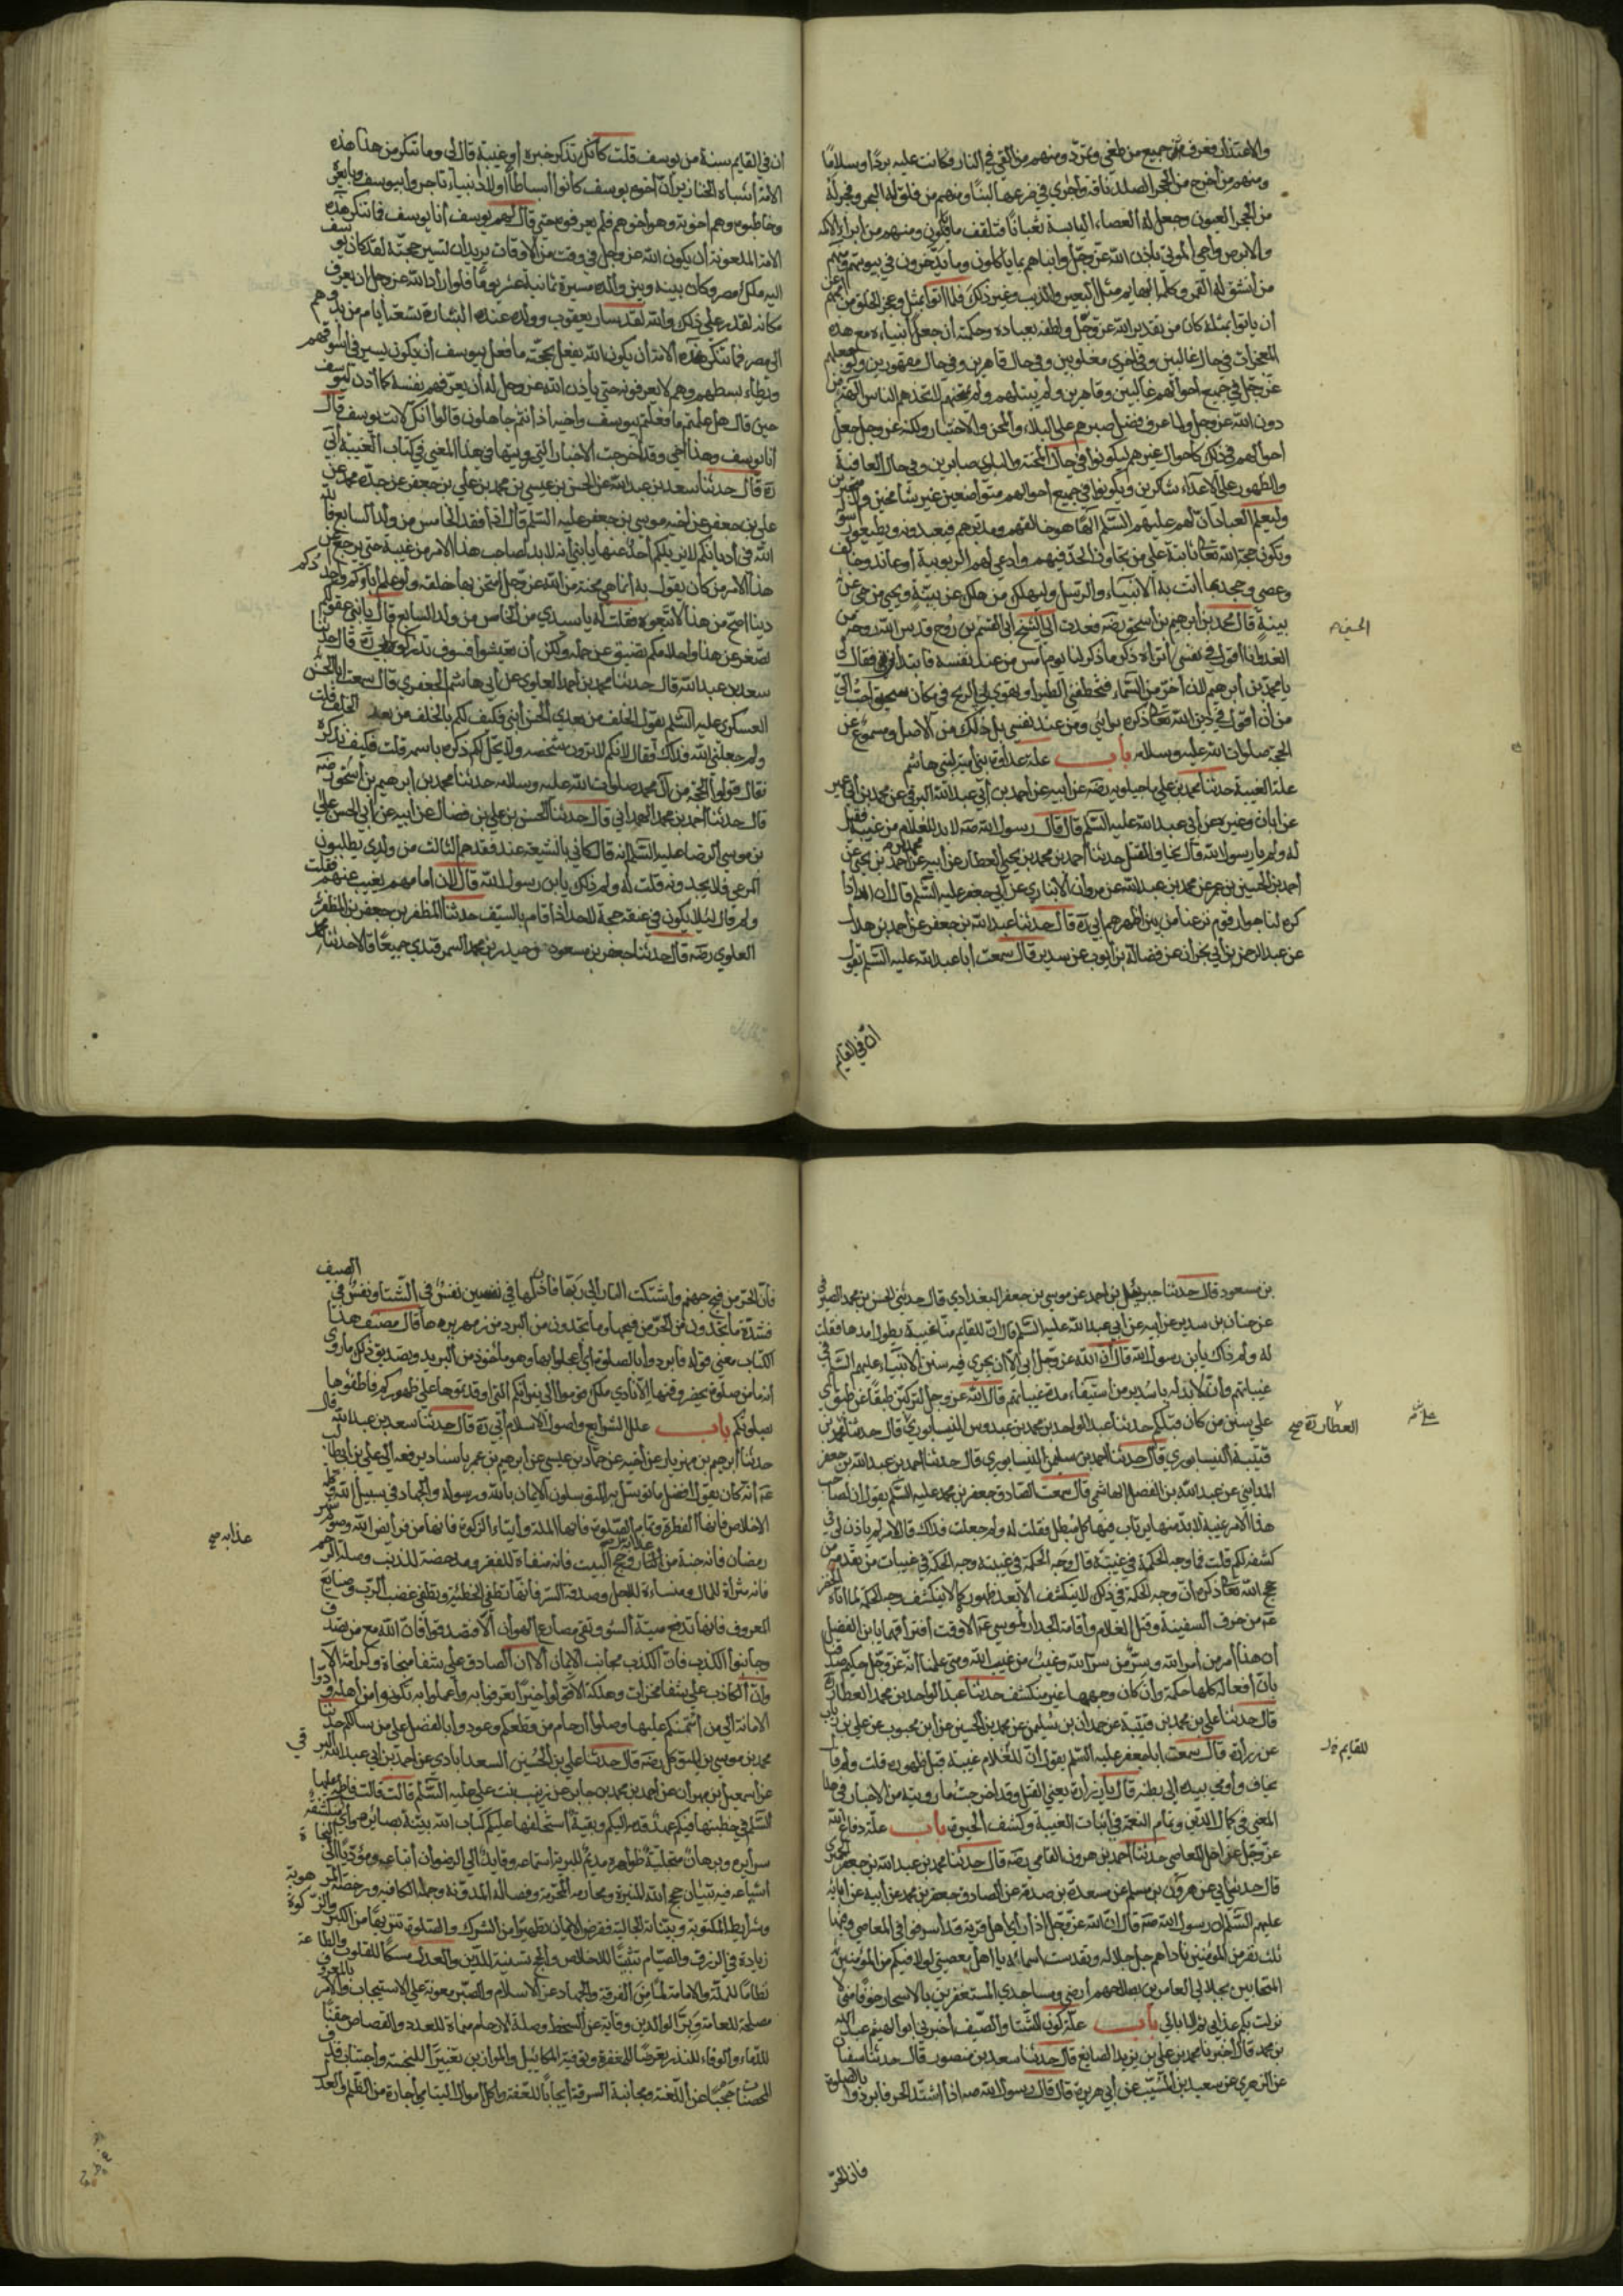 والاعتذار فغرق جميع من طغى وتمرد ومنهم من القي في النار فكانت عليه بردا وسلاما
ومنهم من اخرج من الحجر الصلد ناقة واجرى في ضرعها لبنا ومنهم من فلق له البحر وفجر له
من الحجر العيون وجعل له العصاء اليابسة ثعبانا فتلقف ما يأفكون ومنهم من ابرأ الاكمه
والابرص واحيى الموتى بإذن الله عز وجل وانباهم بما ياكلون وما يدخرون في بيوتهم ومنهم
من انشق له القمر وكلم البهايم مثل البعير والذيب وغير ذلك فلما اتوا بمثل وعجز الخلق من اممهم عن
ان ياتوا بمثله كان من تقدير الله عز وجل ولطفه بعباده وحكمته ان جعل انبياءه مع هذه
المعجزات في حال غالبين وفي اخرى مغلوبين وفي حال قاهرين وفي حال مقهورين ولو جعلهم
عز وجل في جميع احوالهم غالبين وقاهرين ولم يبتلهم ولم يمتحنهم لاتخذهم الناس الهة من
دون الله عز وجل ولما عرف فضل صبرهم على البلاء والمحن والاختبار ولكنه عز وجل جعل
احوالهم في ذلك كاحوال غيرهم ليكونوا في حال المحنة والبلوى صابرين وفي حال العافية
والظهور على الاعداء شاكرين ويكونوا في جميع احوالهم متواضعين غير شامخين ولا متجبرين
وليعلم العباد ان لهم عليهم السلم الها هو خالقهم ومدبرهم فيعبدوه ويطيعوا رسوله
ويكون حجة الله تعالى ثابتة على من تجاوز الحد فيهم وادعى لهم الربوبية او عاند وخالف
وعصى وجحد بما اتت به الانبياء والرسل وليهلك من هلك عن بينة ويحيى من حي عن
بينة قال محمد بن ابرهيم بن اسحق رضه فعدت الى الشيخ ابي القسم بن روح قدس الله روحه من
الغد وانا اقول في نفسي اتراه ذكر ما ذكر لنا يوم امس من عند نفسه فابتدأني فقال لي
يا محمد بن ابرهيم لان اخر من السماء فتخطفني الطير او تهوي بي الريح في مكان سحيق احب الي
من ان اقول في دين الله تعالى ذكره برايي ومن عند نفسي بل ذلك من الاصل ومسموع عن
الحجة صلوات الله عليه وسلامه باب علة عداوة بني امية لبني هاشم
علة الغيبة حدثنا محمد بن علي ماجيلويه رضه عن ابيه عن احمد بن ابي عبد الله البرقي عن محمد بن ابي عمير
عن ابان وغيره عن ابي عبد الله عليه السلم قال قال رسول الله صه لا بد للغلام من غيبة فقيل
له ولم يا رسول الله قال يخاف القتل حدثنا احمد بن محمد بن يحيى العطار عن ابيه عن احمد بن يحيى عن
احمد بن الحسين بن عمر عن محمد بن عبد الله عن مروان الانباري عن ابي جعفر عليه السلم قال ان الله اذا
كره لنا جوار قوم نزعنا من بين اظهرهم ابي ره قال حدثنا عبد الله بن جعفر عن احمد بن هلال
عن عبد الرحمن بن ابي نجران عن فضالة بن ايوب عن سدير قال سمعت ابا عبد الله عليه السلم يقول
ان في القايم
ان في القايم سنة من يوسف قلت كانك تذكر خبره او غيبته قال لي وما تنكر من هذا هذه
الامة اشباه الخنازير ان اخوة يوسف كانوا اسباطا اولاد انبياء تاجروا بيوسف وبايعوه
وخاطبوه وهم اخوته وهو اخوهم فلم يعرفوه حتى قال لهم يوسف انا يوسف فما تنكر هذه
الامة الملعونة ان يكون الله عز وجل في وقت من الاوقات يريد ان يستر حجته لقد كان يوسف
اليه ملك مصر وكان بينه وبين والده مسيرة ثمانية عشر يوما فلو اراد الله عز وجل ان يعرف
مكانه لقدر على ذلك والله لقد سار يعقوب وولده عند البشارة تسعة ايام من بدوهم
الى مصر فما تنكر هذه الامة ان يكون الله يفعل بحجته ما فعل بيوسف ان يكون يسير في اسواقهم
ويطاء بسطهم وهم لا يعرفونه حتى ياذن الله عز وجل له ان يعرفهم نفسه كما اذن ليوسف
حين قال هل علمتم ما فعلتم بيوسف واخيه اذ انتم جاهلون قالوا انك لانت يوسف قال
انا يوسف وهذا اخي وقد اخرجت الاخبار التي رويتها في هذا المعنى في كتاب الغيبة ابي
ره قال حدثنا سعد بن عبد الله عن الحسن بن عيسى بن محمد بن علي بن جعفر عن جده محمد عن
علي بن جعفر عن اخيه موسى بن جعفر عليه السلم قال اذا فقد الخامس من ولد السابع فالله
الله في اديانكم لا يزيلكم احد عنها يا بني انه لا بد لصاحب هذا الامر من غيبة حتى يرجع عن
هذا الامر من كان يقول به انما هي محنة من الله عز وجل امتحن بها خلقه ولو علم اباؤكم واجدادكم
دينا اصح من هذا لاتبعوه فقلت له يا سيدي من الخامس من ولد السابع قال يا بني عقولكم
تصغر عن هذا واحلامكم تضيق عن حمله ولكن ان تعيشوا فسوف تدركونه ابي ره قال حدثنا
سعد بن عبد الله قال حدثنا محمد بن احمد العلوي عن ابي هاشم الجعفري قال سمعت ابا الحسن
العسكري عليه السلم يقول الخلف من بعدي الحسن ابني فكيف لكم بالخلف من بعد الخلف قلت
ولم جعلني الله فداك فقال لانكم لا ترون شخصه ولا يحل لكم ذكره باسمه قلت فكيف نذكره
فقال قولوا الحجة من آل محمد صلوات الله عليه وسلامه حدثنا محمد بن ابرهيم بن اسحق رضه
قال حدثنا احمد بن محمد الهمداني قال حدثنا علي بن الحسن بن علي بن فضال عن ابيه عن ابي الحسن علي
بن موسى الرضا عليه السلم انه قال كاني بالشيعة عند فقدهم الثالث من ولدي يطلبون
المرعى فلا يجدونه قلت له ولم ذلك يا بن رسول الله قال لان امامهم يغيب عنهم فقلت
ولم قال لئلا يكون في عنقه حجة لاحد اذا قام بالسيف حدثنا المظفر بن جعفر بن المظفر
العلوي رضه قال حدثنا جعفر بن مسعود وحيدر بن محمد السمرقندي جميعا قالا حدثنا محمد
بن مسعود قال حدثنا جبرئيل بن احمد عن موسى بن جعفر البغدادي قال حدثني الحسن بن محمد الصيرفي
عن حنان بن سدير عن ابيه عن ابي عبد الله عليه السلم قال ان للقايم منا غيبة يطول امدها فقلت
له ولم ذاك يا بن رسول الله قال ان الله عز وجل ابى الا ان يجري فيه سنن الانبياء عليهم السلم في
غيباتهم وانه لا بد له يا سدير من استيفاء مدة غيباتهم قال الله عز وجل لتركبن طبقا عن طبق اي
على سنن من كان قبلكم حدثنا عبد الواحد بن محمد بن عبدوس النيسابوري قال حدثنا علي بن محمد بن
قتيبة النيسابوري قال حدثنا حمدان بن سليمن النيسابوري قال حدثنا احمد بن عبد الله بن جعفر
المدايني عن عبد الله بن الفضل الهاشمي قال سمعت الصادق جعفر بن محمد عليه السلم يقول ان لصاحب
هذا الامر غيبة لا بد منها يرتاب فيها كل مبطل فقلت له ولم جعلت فداك قال لامر لم يؤذن لي في
كشفه لكم قلت فما وجه الحكمة في غيبته قال وجه الحكمة في غيبته وجه الحكمة في غيبات من تقدمه من
حجج الله تعالى ذكره ان وجه الحكمة في ذلك لا ينكشف الا بعد ظهوره كما لا ينكشف وجه الحكمة لما اتاه الخضر
عه من خرق السفينة وقتل الغلام واقامة الجدار لموسى عه الا وقت افتراقهما يا بن الفضل
ان هذا امر من امر الله وسر من سر الله وغيب من غيب الله ومتى علمنا انه عز وجل حكيم صدقنا
بان افعاله كلها حكمة وان كان وجهها غير منكشف حدثنا عبد الواحد بن محمد العطار ره
قال حدثنا علي بن محمد بن قتيبة عن حمدان بن سليمن عن محمد بن الحسين عن ابن محبوب عن علي بن رياب
عن زرارة قال سمعت ابا جعفر عليه السلم يقول ان للغلام غيبة قبل ظهوره قلت ولم قال
يخاف واومى بيده الى بطنه قال زرارة يعني القتل وقد اخرجت ما رويته من الاخبار في هذا
المعنى في كمال الدين وتمام النعمة في اثبات الغيبة وكشف الحيرة باب علة دفاع الله
عز وجل عن اهل المعاصي حدثنا احمد بن هرون الفامي رضه قال حدثنا محمد بن عبد الله بن جعفر الحميري
قال حدثني ابي عن هرون بن مسلم عن مسعدة بن صدقة عن الصادق جعفر بن محمد عن ابيه عن ابايه
عليهم السلم ان رسول الله صه قال ان الله عز وجل اذا راى اهل قرية قد اسرفوا في المعاصي وفيها
ثلث نفر من المؤمنين ناداهم جل جلاله وتقدست اسماءه يا اهل معصيتي لولا فيكم من المؤمنين
المتحابين بجلالي العامرين بصلاتهم ارضي ومساجدي المستغفرين بالاسحار خوفا مني لا
نزلت بكم عذابي ثم لا ابالي باب علة كون الشتاء والصيف اخبرني ابو الهيثم عبد الله
بن محمد قال اخبرنا محمد بن علي بن يزيد الصايغ قال حدثنا سعد بن منصور قال حدثنا سفيان
عن الزهري عن سعيد بن المسيب عن ابي هريرة قال قال رسول الله صه اذا اشتد الحر فابردوا بالصلوة
فان الحر
فان الحر من فيح جهنم واشتكت النار الى ربها فاذن لها في نفسين نفس في الشتاء ونفس في الصيف
فشدة ما تجدون من الحر من فيحها وما تجدون من البرد من زمهريرها قال مصنف هذا
الكتاب معنى قوله فابردوا بالصلوة اي اعجلوا بها وهو ماخوذ من البريد وتصديق ذلك ما روي
انه ما من صلوة يحضر وقتها الا نادى ملك قوموا الى نيرانكم التي اوقدتموها على ظهوركم فاطفؤها
بصلوتكم باب علل الشرايع واصول الاسلام ابي ره قال حدثنا سعد بن عبد الله قال
حدثنا ابرهيم بن مهزيار عن اخيه عن حماد بن عيسى عن ابرهيم بن عمر باسناده يرفعه الى علي بن ابي طالب
عه انه كان يقول افضل ما توسل به المتوسلون الايمان بالله ورسوله والجهاد في سبيل الله وكلمة
الاخلاص فانها الفطرة وتمام الصلوة فانها الملة وايتاء الزكوة فانها من فرايض الله وصوم شهر
رمضان فانه جنة من عذابه وحج البيت فانه منفاة للفقر ومدحضة للذنب وصلة الرحم
فانه مثراة للمال ومنساءة للاجل وصدقة السر فانها تطفي الخطيئة وتطفي غضب الرب وصنايع
المعروف فانها تدفع ميتة السوء وتقي مصارع الهوان الا فتصدقوا فان الله مع من صدق
وجانبوا الكذب فان الكذب مجانب الايمان الا ان الصادق على شفا منجاة وكرامة الا
وان الكاذب على شفا مخزاة وهلكة الا وقولوا خيرا تعرفوا به واعملوا به تكونوا من اهله وادوا
الامانة الى من ائتمنكم عليها وصلوا ارحام من قطعكم وعودوا بالفضل على من سالكم حدثنا
محمد بن موسى بن المتوكل رضه قال حدثنا علي بن الحسين السعد ابادي عن احمد بن ابي عبد الله البرقي
عن اسمعيل بن مهران عن احمد بن محمد بن جابر عن زينب بنت علي عليه السلم قالت قالت فاطمة عليها
السلم في خطبتها فيكم عهد قدمه اليكم وبقية استخلفها عليكم كتاب الله بينة بصائره واي منكشفة
سرايره وبرهان متجلية ظواهره مديم للبرية استماعه وقايد الى الرضوان اتباعه ومؤديا الى النجاة
اشياعه فيه تبيان حجج الله المنيرة ومحارمه المحرمة وفضائله المدونة وجمله الكافية ورخصه الموهوبة
وشرايعه المكتوبة وبيناته الجالية ففرض الايمان تطهيرا من الشرك والصلوة تنزيها من الكبر والزكوة
زيادة في الرزق والصيام تثبيتا للاخلاص والحج تسنية للدين والعدل مسكا للقلوب والطاعة
نظاما للملة والامامة لما من الفرقة والجهاد عز الاسلام والصبر معونة على الاستيجاب والامر بالمعروف
مصلحة للعامة وبر الوالدين وقاية عن السخط وصلة الارحام منماة للعدد والقصاص حقنا
للدماء والوفاء للنذر تعرضا للمغفرة وتوفية المكائيل والموازين تغييرا للبخسة واجتناب قذف
المحصنات حجبا عن اللعنة ومجانبة السرقة ايجابا للعفة واكل اموال اليتامى اجارة من الظلم والعدل
عذابه صح
العطار ره صح
للقايم خل